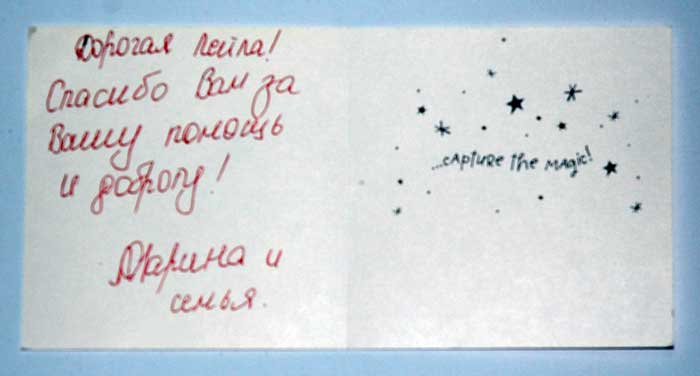 Дорогая Лейла!
Спасибо Вам за
Вашу помощь
и доброту!
Марина и
семья.
...capture the magic!